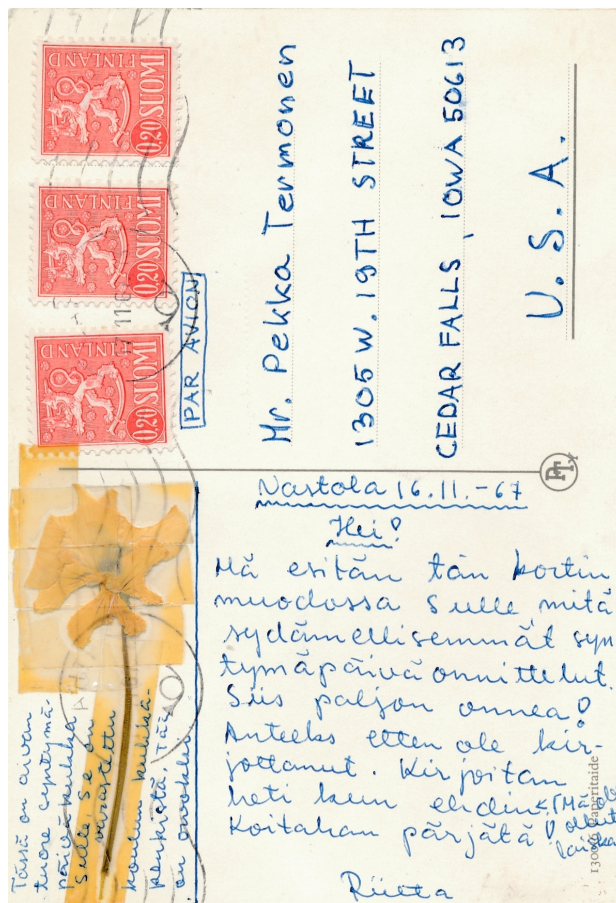 FINLAND
0,20 SUOMI
FINLAND
0,20 SUOMI
FINLAND
0,20 SUOMI
PAR AVION
Mr. Pekka Termonen
1305 W. 19TH STREET
CEDAR FALLS, IOWA 50613
U.S.A.
Nastola 16.11.-67
Hei!
Mä esitän tän kortin
muodossa Sulle mitä
sydämellisemmät syn
tymäpäiväonnittelut.
Siis paljon onnea!
Anteeks etten ole kir-
jottanut. Kirjoitan
heti kun ehdin. (Mä ole
ollut
Koitahan pärjätä!
Riitta
Tässä on aivan
tuore syntymä-
päiväkukka
Sulle, se on
varastettu
koulun kukka-
penkistä. Tää
on orvokki
130066 Paperitaide